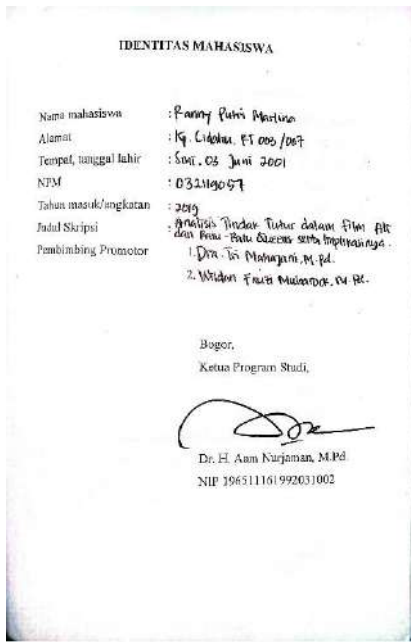 IDENTITAS MAHASISWA
Nama mahasiswa : Ranny Putri Marlina
Alamat : Kg. Cidahu, RT 003/007
Tempat, tanggal lahir : Smi, 03 Juni 2001
NPM : 032119057
Tahun masuk/angkatan : 2019
Judul Skripsi : Analisis Tindak Tutur dalam Film Ali
dan Ratu-Ratu Queens serta Implikasinya.
Pembimbing Promotor 1. Dra. Tri Mahajani, M.Pd.
2. Wildan Fauzi Mubarock, M.Pd.
Bogor,
Ketua Program Studi,
Dr. H. Aam Nurjaman, M.Pd
NIP 196511161992031002